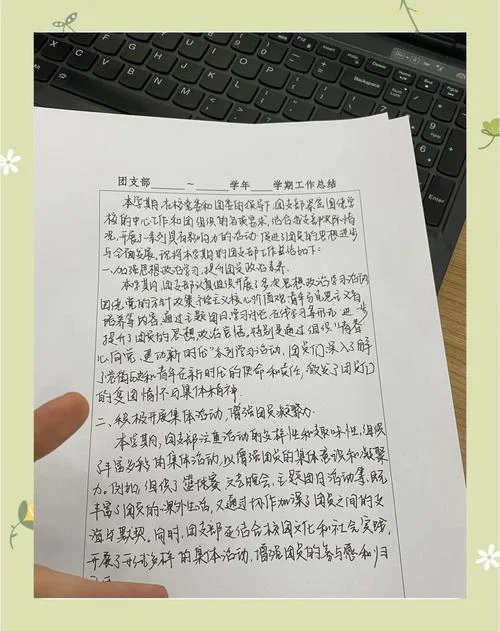 团支部______~______学年____学期工作总结
本学期,在校党委和团委的领导下,团支部紧密围绕学
校的中心工作和团组织的各项要求,结合我支部实际情
况,开展了一系列具有积极的活动,促进了团员的思想进步
与全面发展。现将本学期的团支部工作总结如下:
一、加强思想政治学习,提升团员政治素养。
本学期,团支部认真组织开展了多次思想政治学习活动
围绕党的方针政策、社会主义核心价值观、青年马克思主义者
培养等内容,通过主题团日、学习讨论、在线学习等形式,进一步
提升了团员的思想政治觉悟。特别是通过组织“青春
心向党,建功新时代”系列学习活动,团员们深入了解
了党的历史和青年在新时代的使命和责任,激发了团员们
的爱国情怀与集体精神
二、积极开展集体活动,增强团员凝聚力.
本学期,团支部注重活动的多样性和趣味性,组织
了丰富多彩的集体活动,以增强团员的集体意识和凝聚
力。例如,组织了篮球赛、文艺晚会、主题团日活动等,既
丰富了团员的课外生活,又通过协作加深了团员之间的友
谊与默契。同时,团支部还结合校园文化和社会实践,
开展了形式多样的集体活动,增强团员的参与感和归